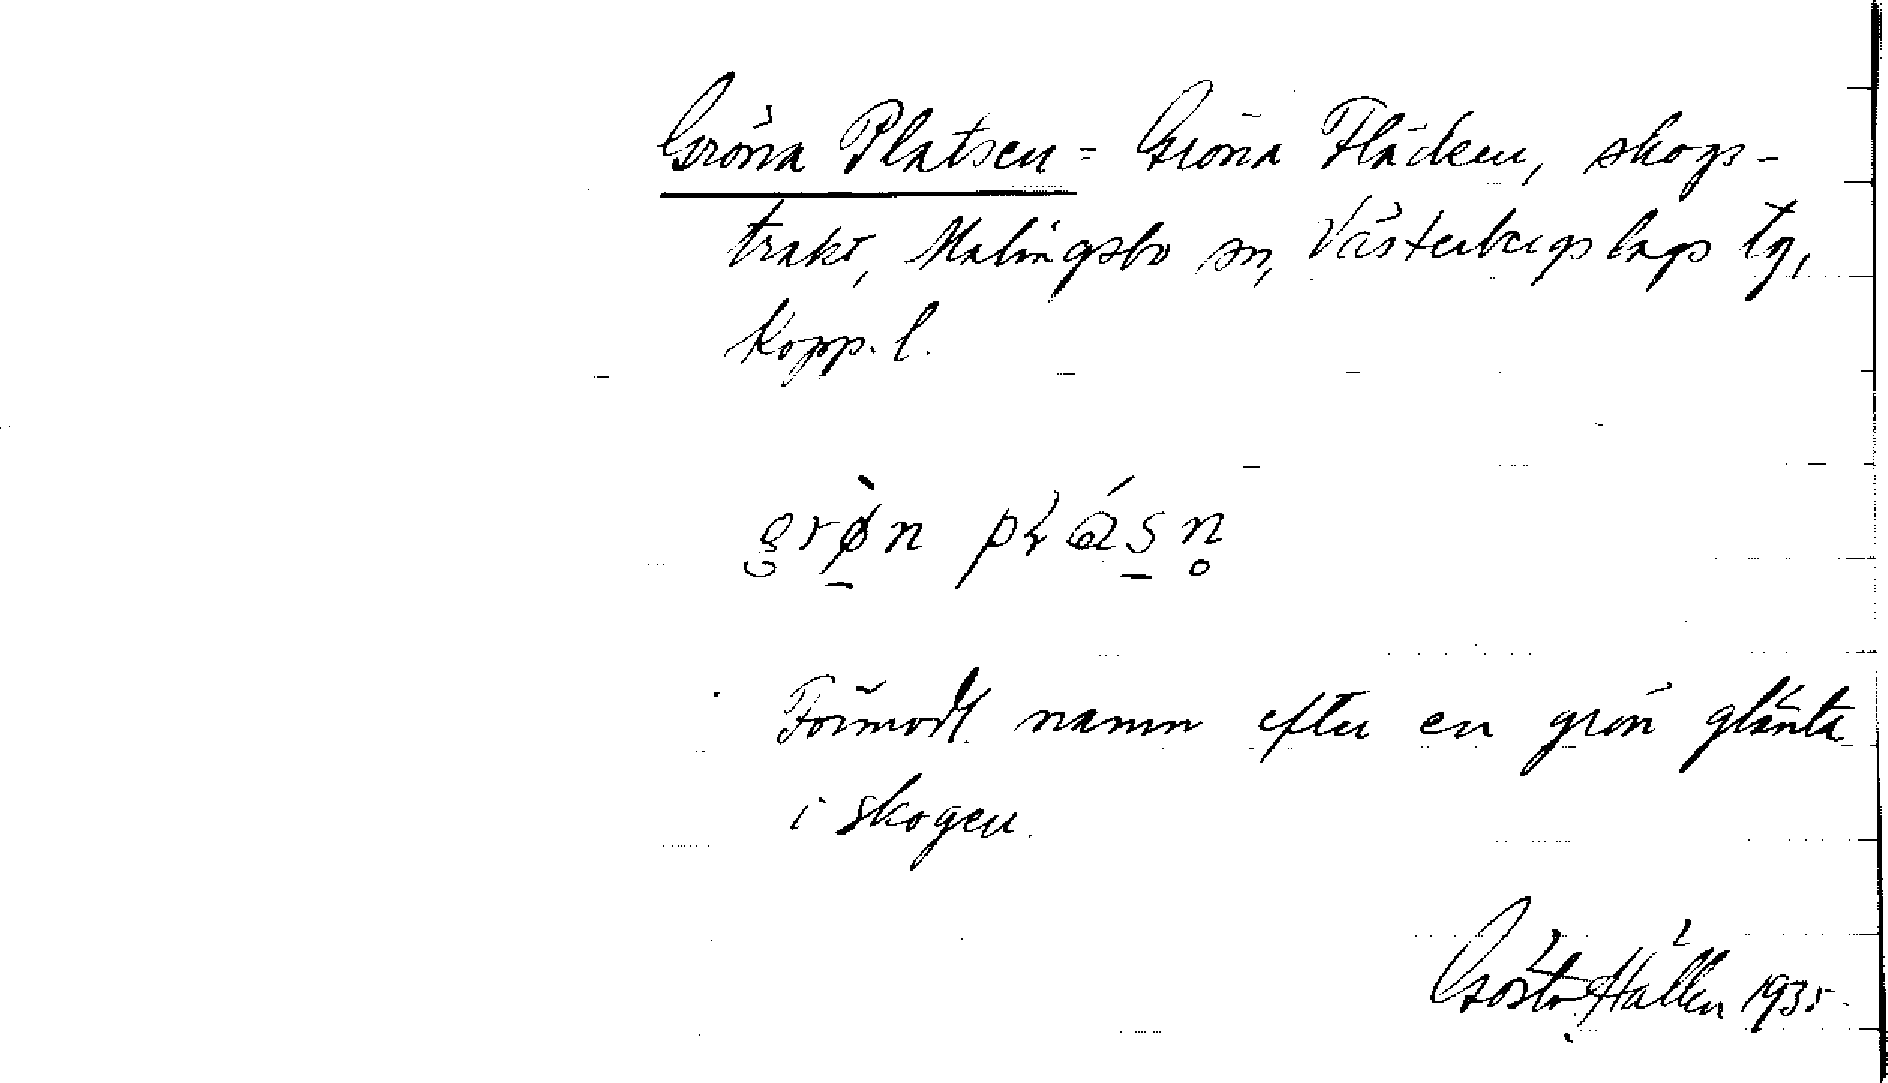 Gröna Platsen = Gröna Fläcken, skogs-
trakt, Malingsbo sn, Västerbergslags tg,
Kopp. l.
grø̀n pɫásn̥
Förmodl. namn efter en grön glänta
i skogen.
Gösta Hållen 1935.